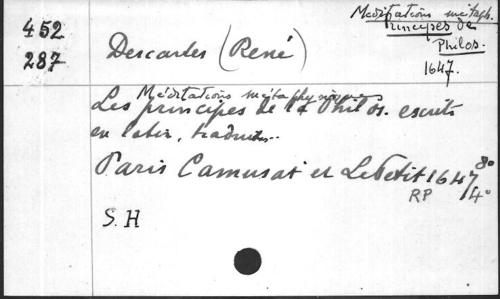 452
287
Descartes (René)
Méditations métaph.
Principes de
Philos.
1647.
Méditations métaphysiques
Les principes de la Philos. escrits
en latin, traduits..
Paris Camusat et Le Petit 1647 8º
RP /4º
S.H